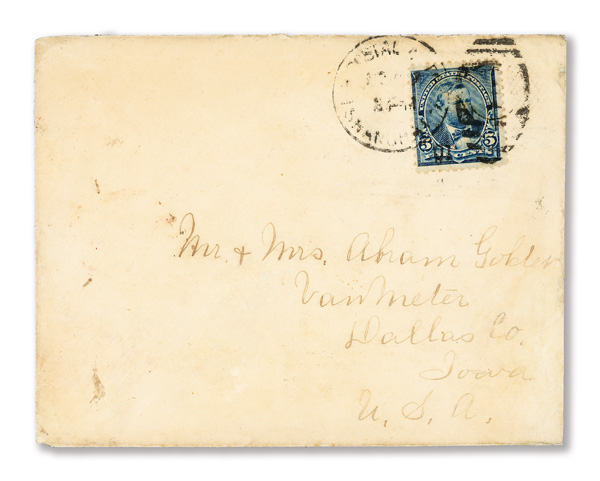 POSTAL
SHANGHAI
UNITED STATES POSTAGE
5 5
Mr. & Mrs. Abram Golder
Van Meter
Dallas Co.
Iowa
U. S. A.